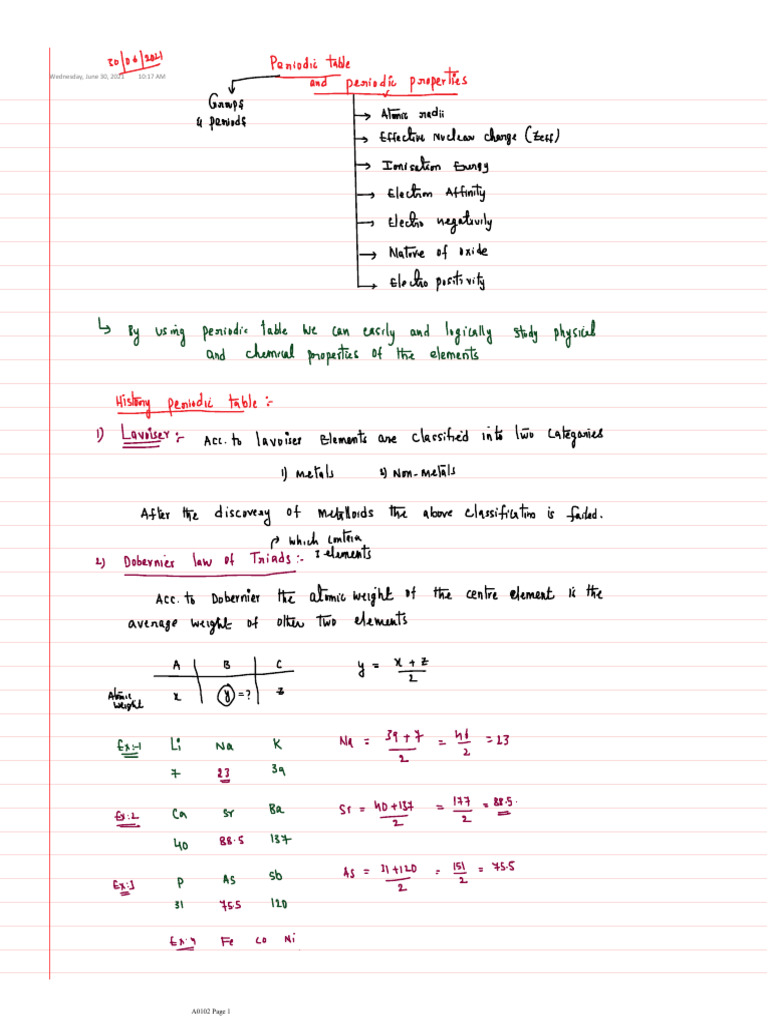 30/06/2021
Wednesday, June 30, 2021 10:17 AM
Periodic table
and periodic properties
Groups
& periods
Atomic radii
Effective Nuclear Charge (Zeff)
Ionisation Energy
Electron Affinity
Electro negativity
Nature of oxide
Electro positivity
↳ By using periodic table we can easily and logically study physical
and chemical properties of the elements
History periodic table :-
1) Lavoiser :- Acc. to lavoiser Elements are classified into two categories
1) Metals 2) Non-Metals
After the discovery of metalloids the above classification is failed.
which contain
2) Dobernier law of Triads :- 3 elements
Acc. to Dobernier the atomic weight of the centre element is the
average weight of other two elements
A B C y = x + z / 2
Atomic weight x y = ? z
Ex:-1 Li Na K Na = 39 + 7 / 2 = 46 / 2 = 23
7 23 39
Ex:2 Ca Sr Ba Sr = 40 + 137 / 2 = 177 / 2 = 88.5.
40 88.5 137
Ex:3 P As Sb As = 31 + 120 / 2 = 151 / 2 = 75.5
31 75.5 120
Ex:4 Fe Co Ni
A0102 Page 1